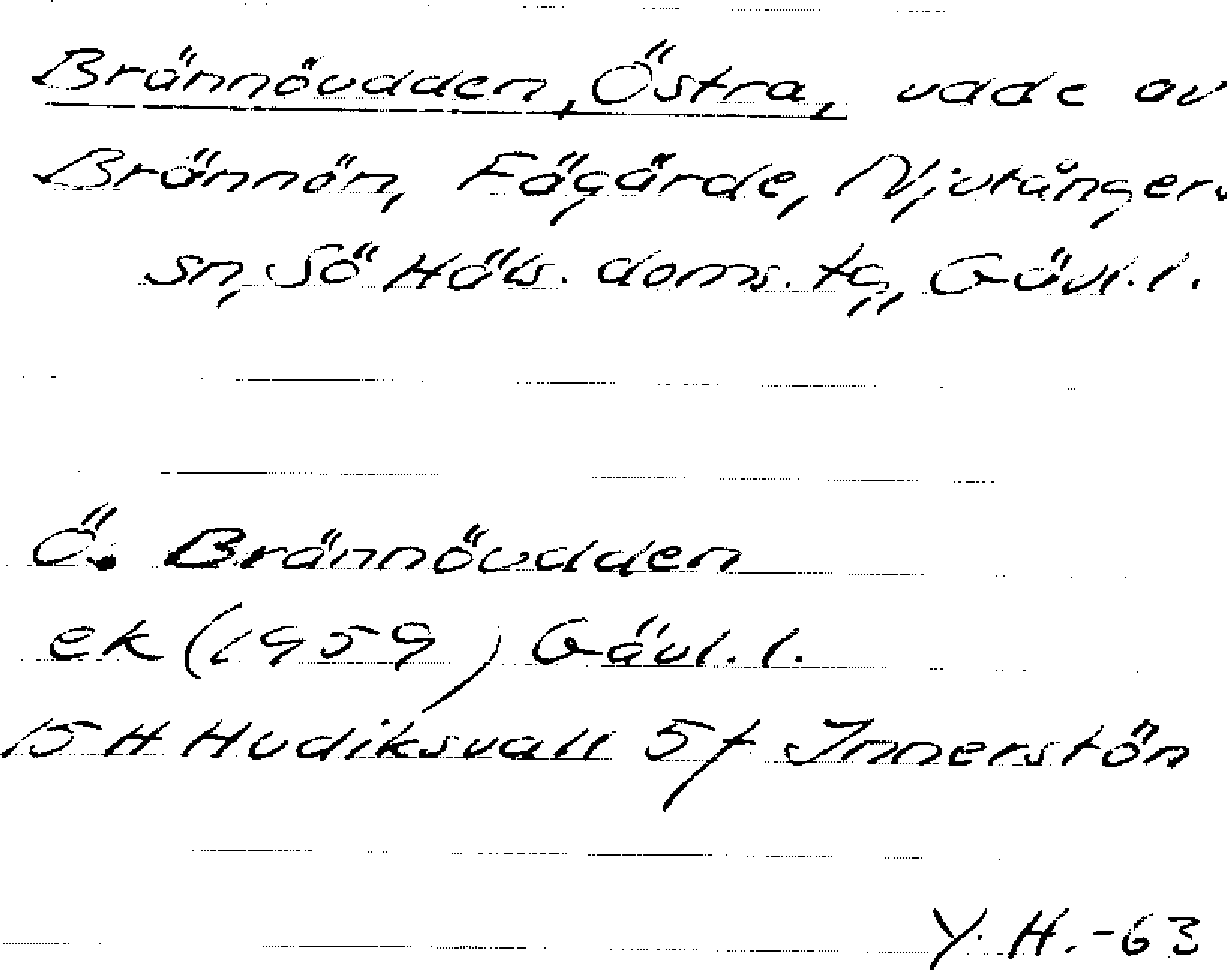 Brännöudden, Östra, udde av
Brännön, Fägärde, Njutångers
sn, Sö Häls. doms. tg,, Gävl. l.
Ö. Brännöudden
ek (1959) Gävl. l.
15 H Hudiksvall 5f Innerstön
Y. H. -63